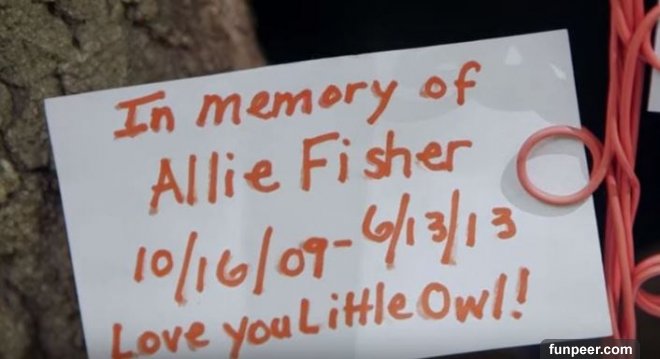 In memory of
Allie Fisher
10/16/09-6/13/13
Love you Little Owl!
funpeer.com